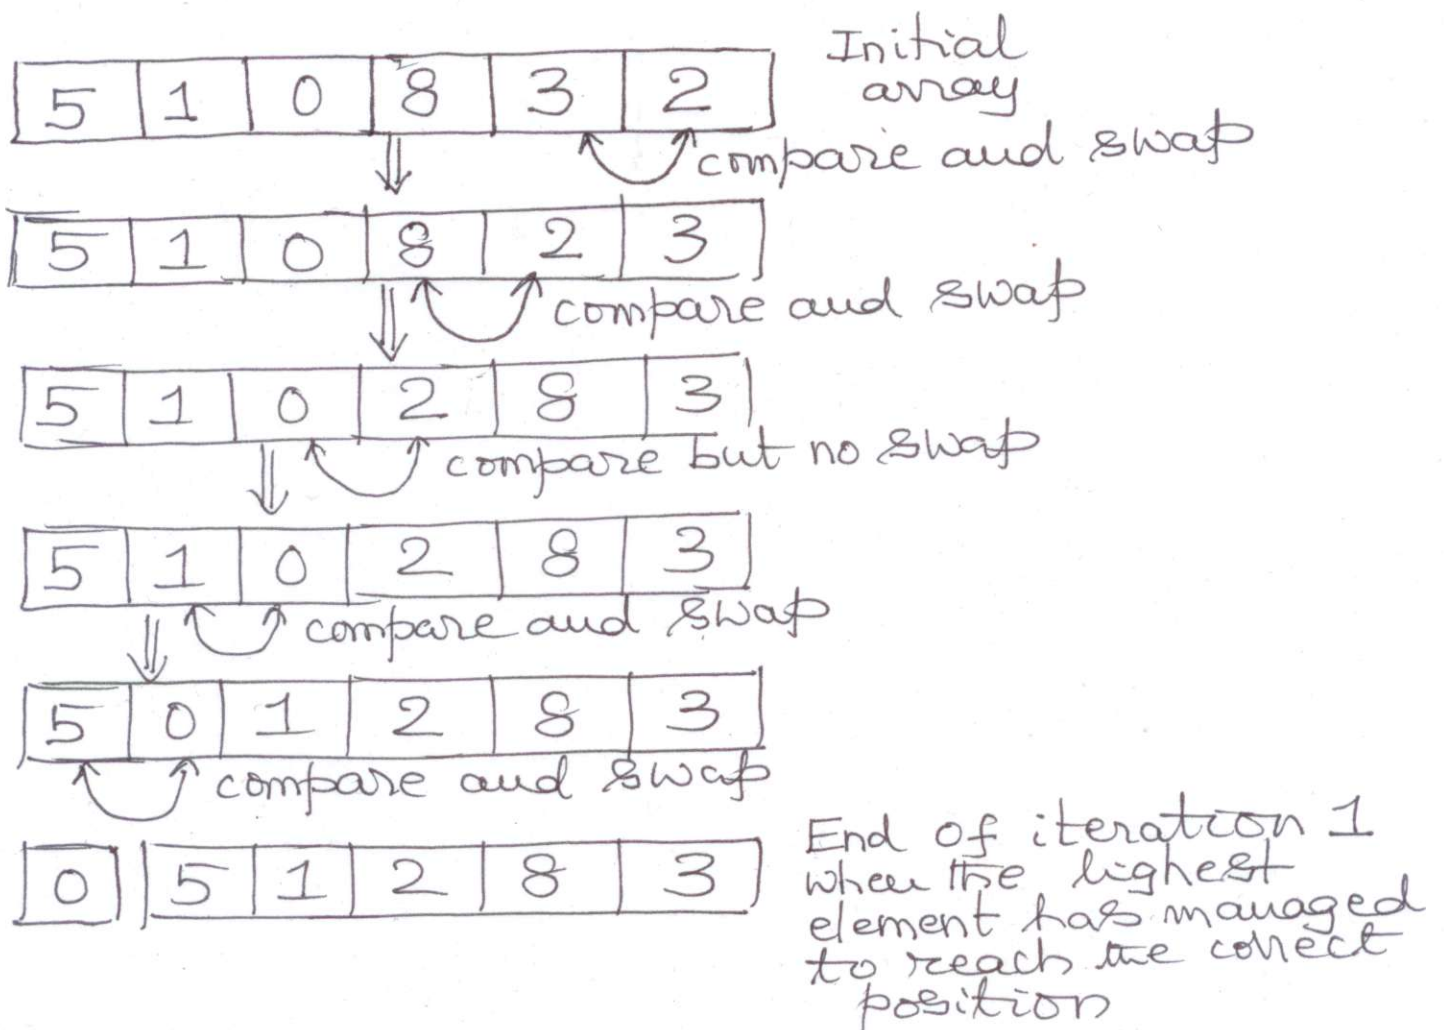 Initial
array
5 1 0 8 3 2
compare and swap
5 1 0 8 2 3
compare and swap
5 1 0 2 8 3
compare but no swap
5 1 0 2 8 3
compare and swap
5 0 1 2 8 3
compare and swap
0 5 1 2 8 3
End of iteration 1
when the lighest
element has managed
to reach the correct
position